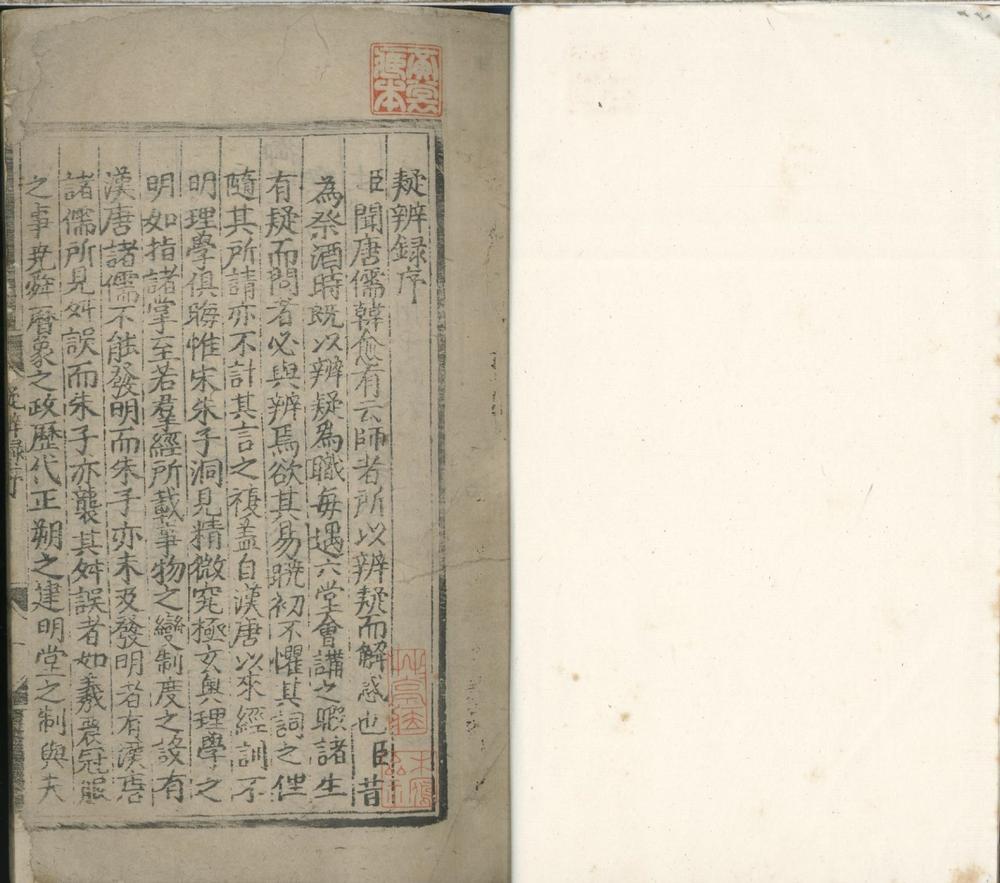 疑辨録序
臣聞唐儒韓愈有云師者所以辨疑而解惑也臣昔
為祭酒時既以辨疑為職每遇六堂會講之暇諸生
有疑而問者必與辨焉欲其易曉初不懼其詞之俚
隨其所請亦不計其言之複蓋自漢唐以來經訓不
明理學俱晦惟宋朱子洞見精微究極玄奥理學之
明如指諸掌至若羣經所載事物之變制度之詳有
漢唐諸儒不能發明而朱子亦未及發明者有漢唐
諸儒所見舛誤而朱子亦襲其舛誤者如羲農冠服
之事尭舜曆象之政歷代正朔之建明堂之制與夫
疑辨録序